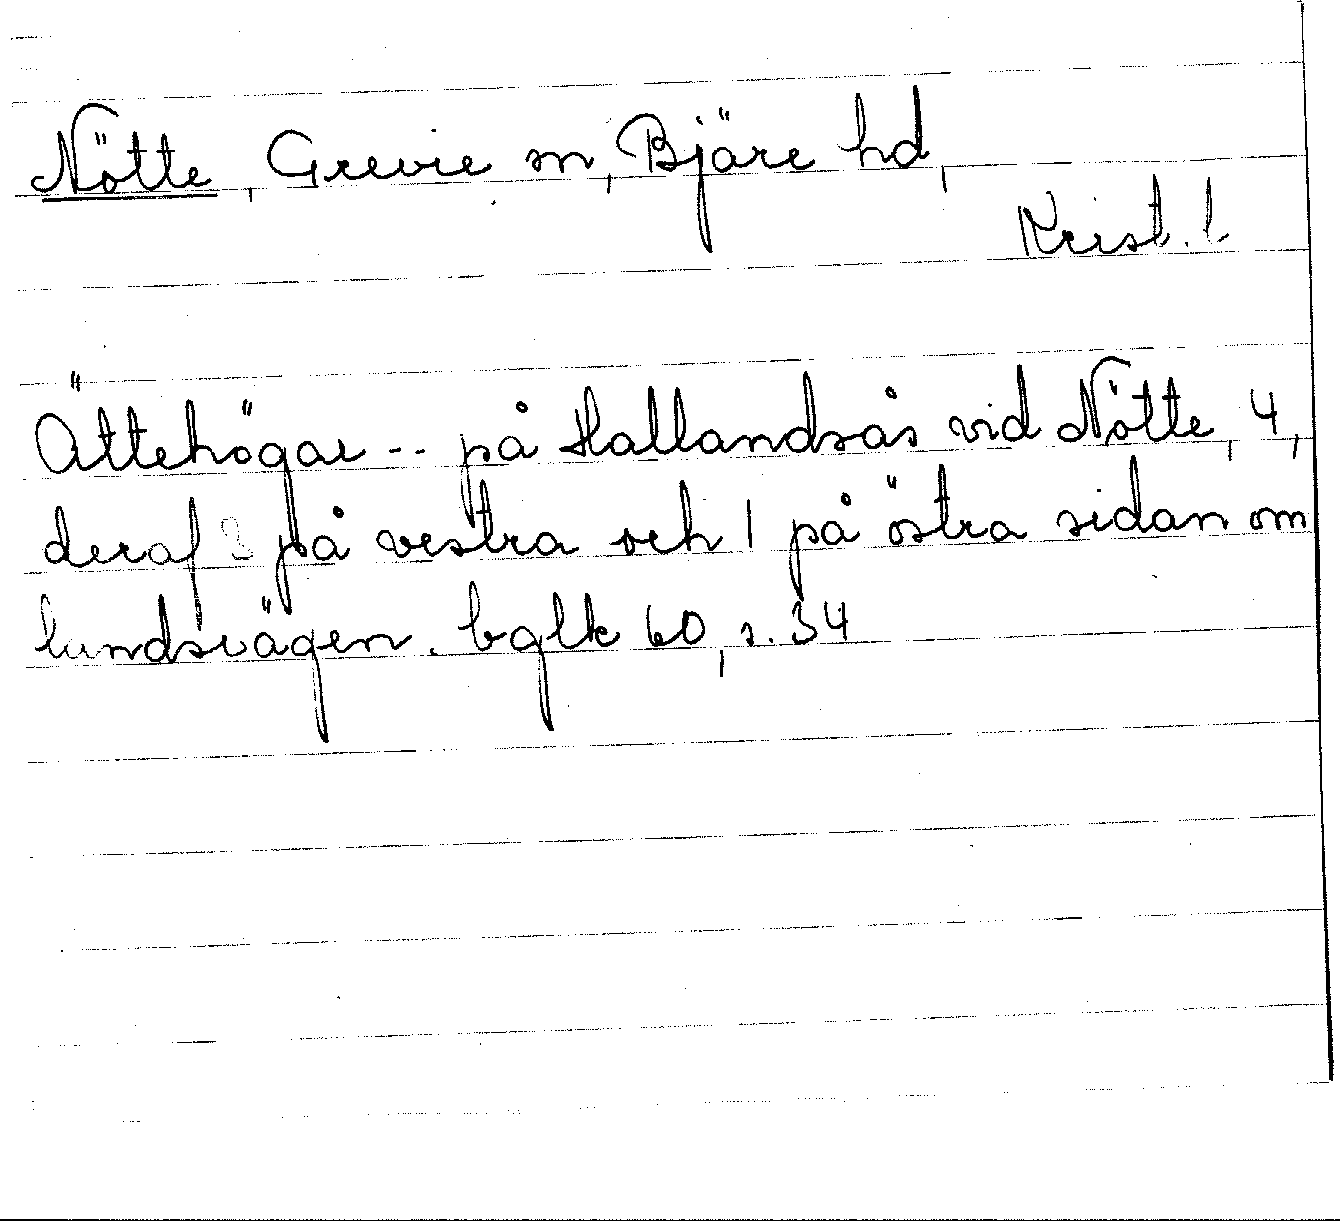 Nötte, Grevie sn, Bjäre hd,
Krist. l.
Ättehögar -- på Hallandsås vid Nötte, 4,
deraf 3 på vestra och 1 på östra sidan om
landsvägen. bglk 60, s. 34